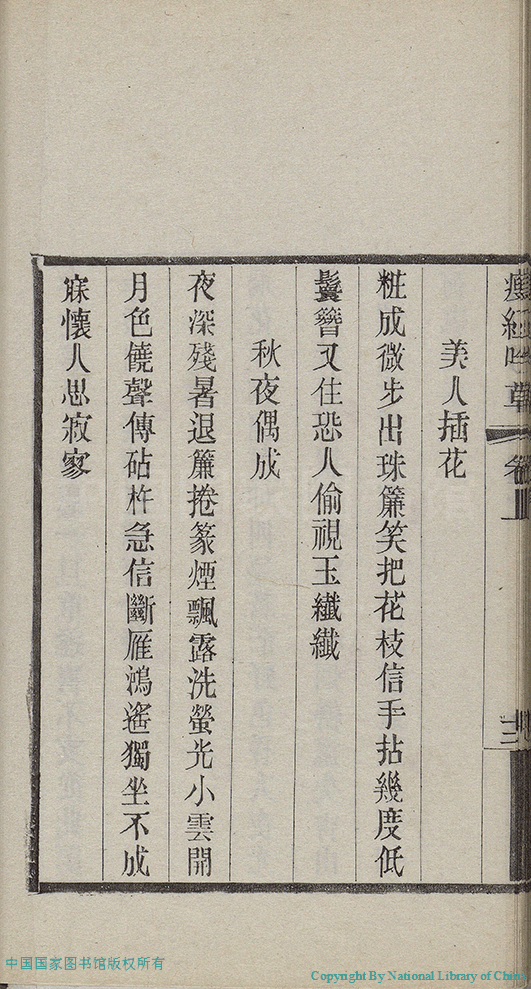 瘦紅吟草 卷上 十三
美人插花
粧成微步出珠簾笑把花枝信手拈幾度低
鬟簪又住恐人偷視玉纖纖
秋夜偶成
夜深殘暑退簾捲篆煙飄露洗螢光小雲開
月色饒聲傳砧杵急信斷雁鴻遙獨坐不成
寐懷人思寂寥
中国国家图书馆版权所有
Copyright By National Library of China